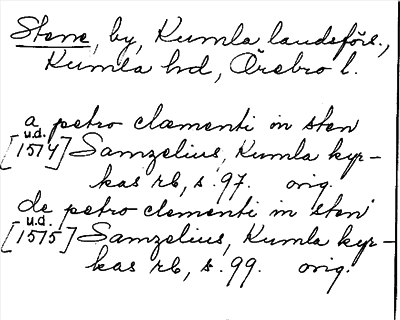 Stene, by, Kumla landsförs.,
Kumla hd, Örebro l.
a petro clementi in sten
u.d.
[1514] Samzelius, Kumla kyr-
kas rb, s. 97. orig.
de petro clementi in sten
u.d.
[1515] Samzelius, Kumla kyr-
kas rb, s. 99. orig.